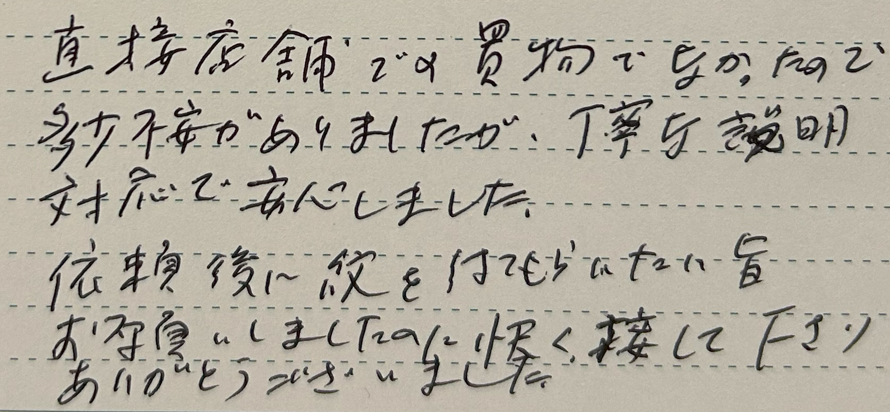 直接店舗での買物でなかったので
多少不安がありましたが、丁寧な説明
対応で安心しました。
依頼後に紋を付てもらいたい旨
お願いしましたのに快く接して下さり
ありがとうございました。